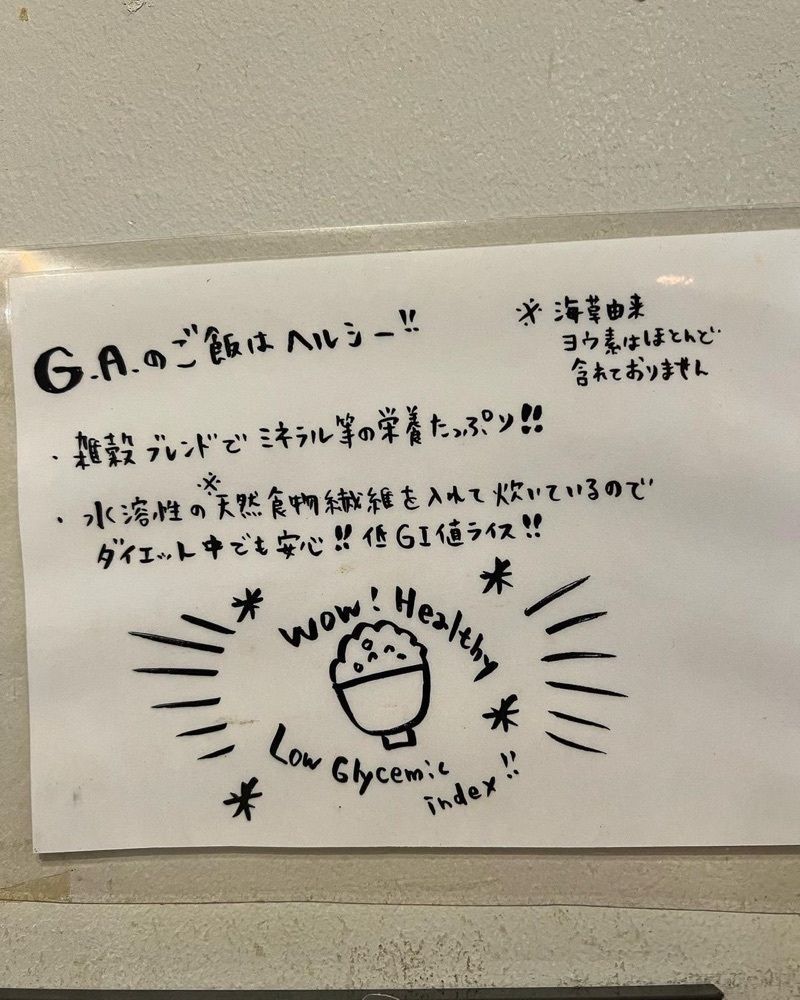 G.A.のご飯はヘルシー!!
※ 海草由来
ヨウ素はほとんど
含れておりません
・雑穀ブレンドでミネラル等の栄養たっぷり!!
※
・水溶性の天然食物繊維を入れて炊いているので
ダイエット中でも安心!! 低GI値ライス!!
Wow! Healthy
Low Glycemic
index!!